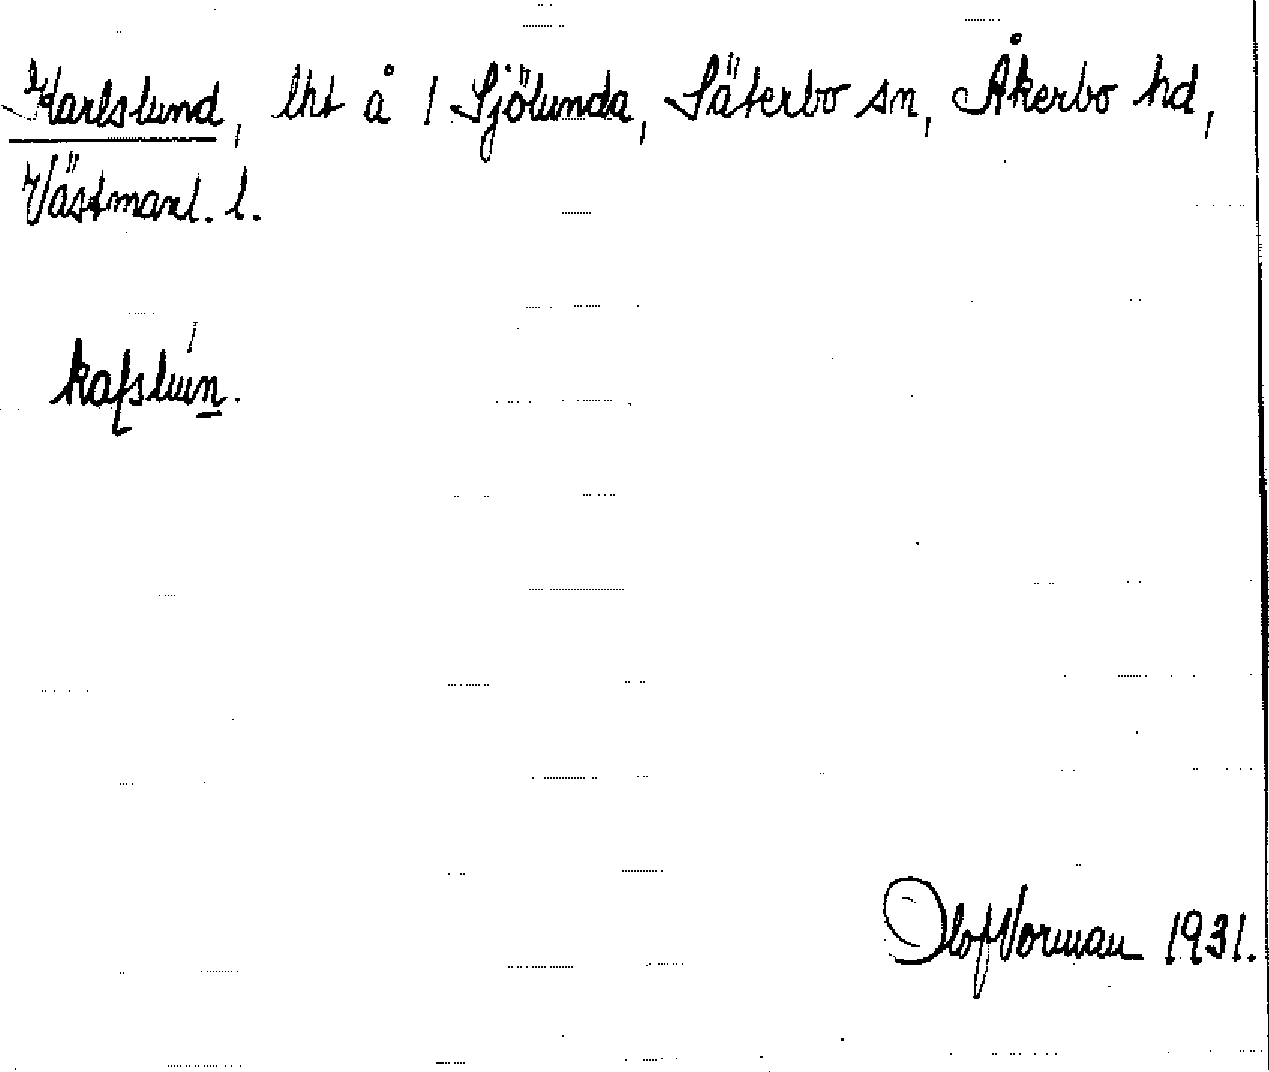 Karlslund, lht å 1 Sjölunda, Säterbo sn, Åkerbo hd,
Västmanl. l.
Olof Norman 1931.